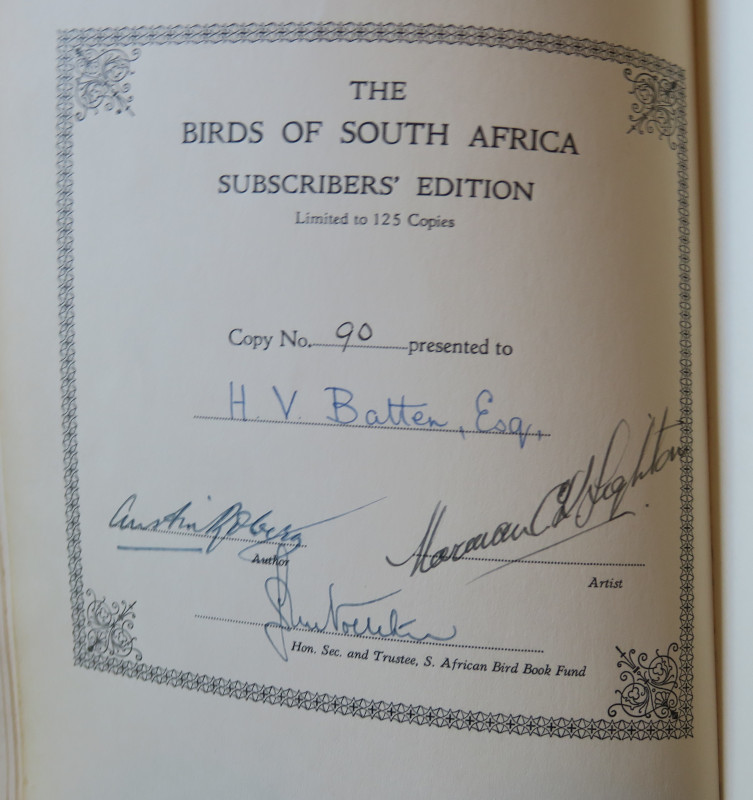 THE
BIRDS OF SOUTH AFRICA
SUBSCRIBERS' EDITION
Limited to 125 Copies
Copy No. 90 presented to
H. V. Batten, Esq,
Austin Roberts
Author
Norman CK Leighton
Artist
Hon. Sec. and Trustee, S. African Bird Book Fund